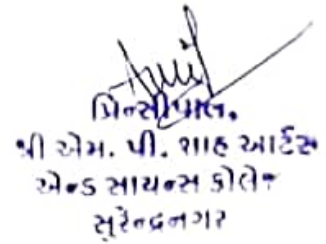 પ્રિન્સીપાલ.
શ્રી એમ. પી. શાહ આર્ટસ
એન્ડ સાયન્સ કોલેજ
સુરેન્દ્રનગર